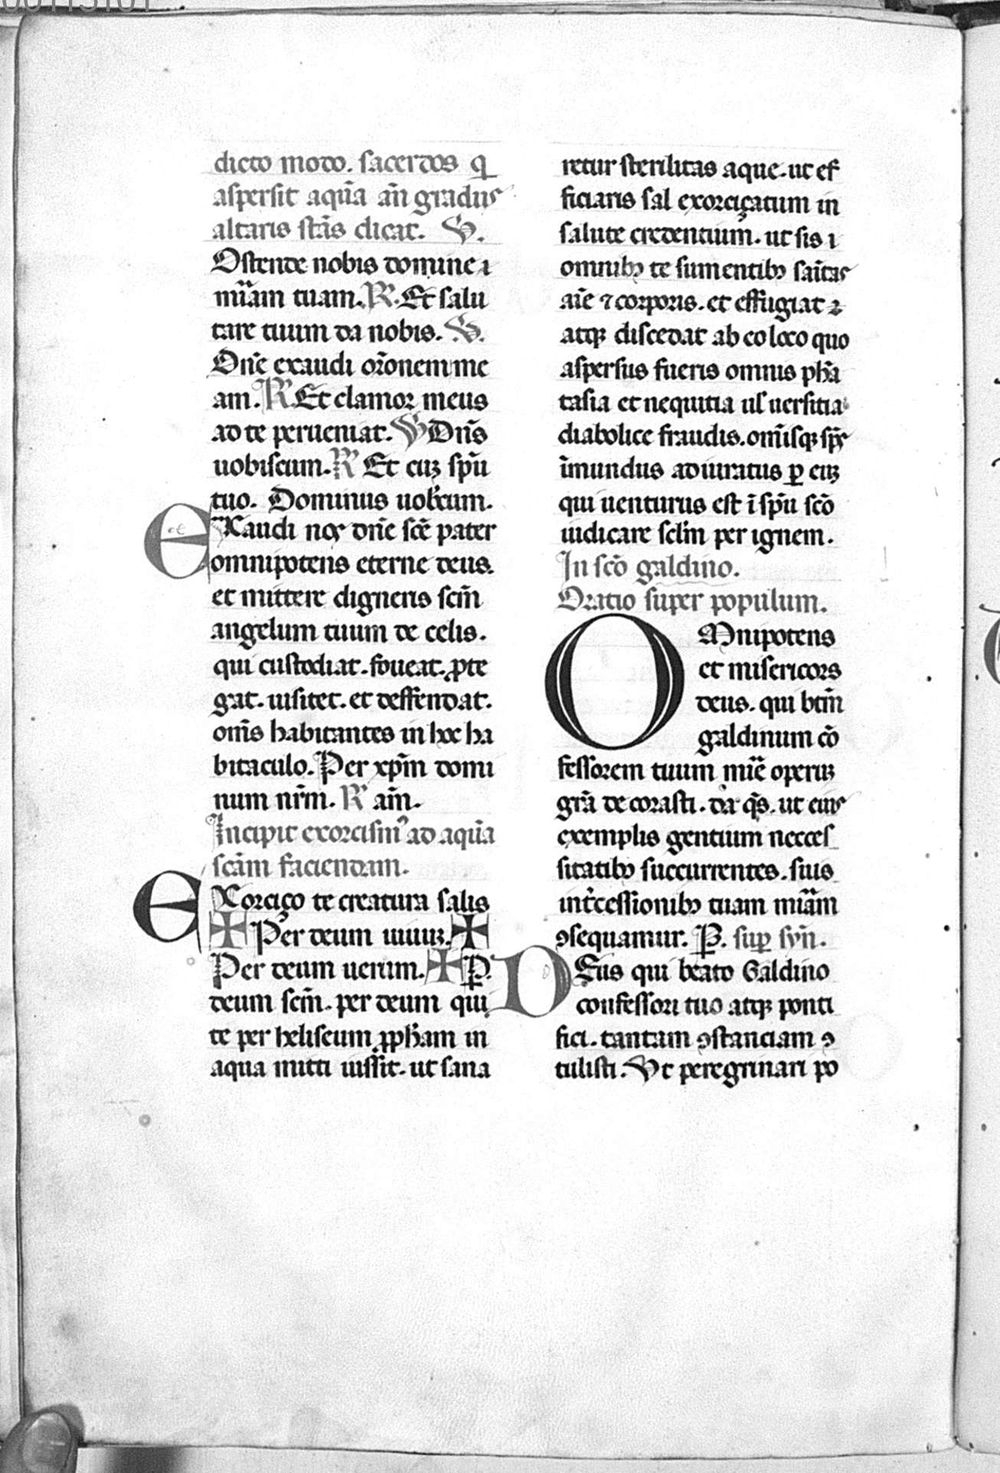 dicto modo. sacerdos q
aspersit aquā añ gradus
altaris stās dicat. V.
Ostende nobis domine i
mīam tuam. R. Et salu
tare tuum da nobis. V.
Dñe exaudi or̄onem me
am. R Et clamor meus
ad te perueniat. V Dñs
uobiscum. R Et cuȝ spū
tuo. Dominus uob̄cum.
EXaudi nos dñe scē pater
omnipotens eterne deus.
et mittere digneris scm̄
angelum tuum de celis.
qui custodiat. foueat. ꝓte
gat. uisitet. et deffendat.
om̄s habitantes in hoc ha
bitaculo. Per xp̄m domi
num nr̄m. R am̄.
Incipit exorcismꝰ ad aquā
scām faciendam.
EXorciço te creatura salis
✠ Per deum uiuuȝ. ✠
Per deum uerum. ✠ P.
deum scm̄. per deum qui
te per heliseum ꝓph̄am in
aqua mitti iussit. ut sana
retur sterilitas aque. ut ef
ficiaris sal exorciçatum in
salute credentium. ut sis i
omnibꝫ te sumentibꝫ sāitas
aīe ⁊ corporis. et effugiat ⁊
atqꝫ discedat ab eo loco quo
aspersus fueris omnis phā
tasia et nequitia ul̄ uersitia
diabolice fraudis. om̄isqꝫ sp̄s
īmundus adiuratus ꝑ euȝ
qui uenturus est ī sp̄u scō
iudicare sclm̄ per ignem.
In scō galdino.
Oratio super populum.
OMnipotens
et misericors
deus. qui btm̄
galdinum cō
fessorem tuum mīe operuȝ
grā decorasti. da qs̄. ut eius
exemplis gentium neces
sitatibꝫ succurrentes. suis
int̄cessionibꝫ tuam mīam
ꝯsequamur. P. suꝑ syn̄.
DEus qui beato Galdino
confessori tuo atqꝫ ponti
fici. tantam ꝯstanciam ꝯ
tulisti. Ut peregrinari po